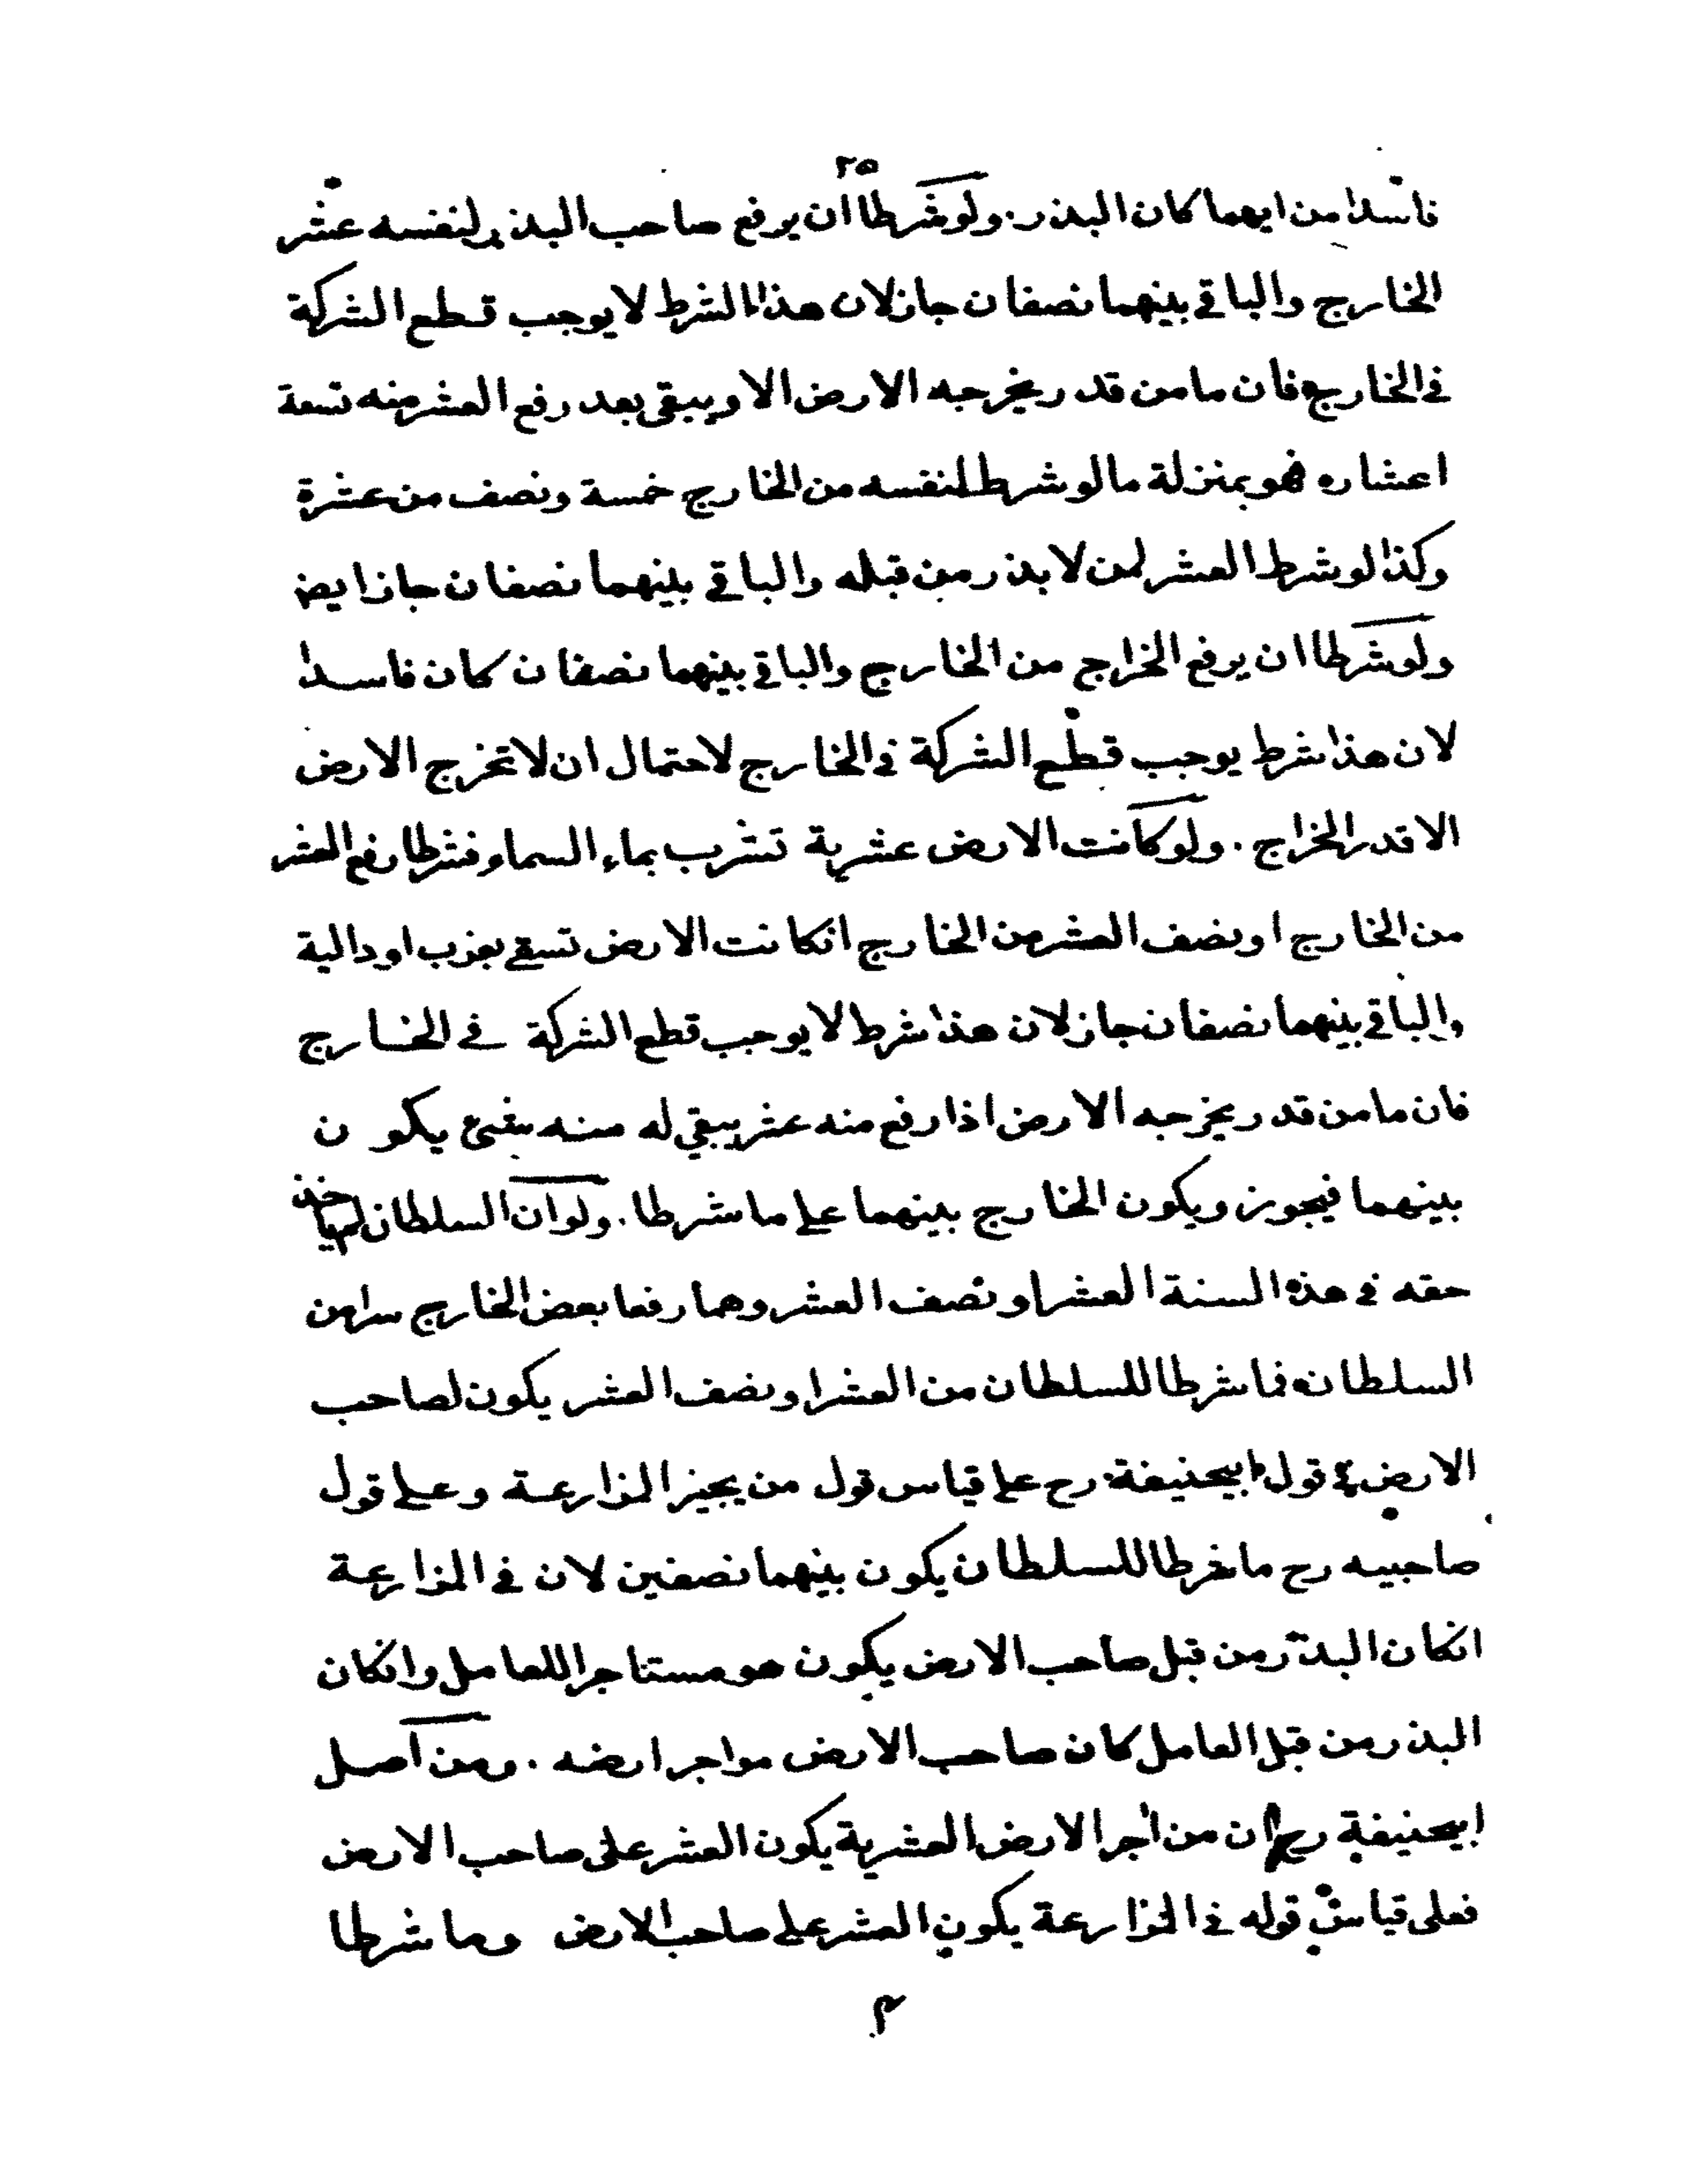 ٢٥
فاسدا من ايهما كان البذر. ولو شرطا ان يرفع صاحب البذر لنفسه عشر
الخارج والباقي بينهما نصفان جاز لان هذا الشرط لا يوجب قطع الشركة
في الخارج فان ما من قدر يخرجه الارض الا ويبقى بعد رفع العشر منه تسعة
اعشاره فهو بمنزلة ما لو شرط لنفسه من الخارج خمسة ونصف من عشرة
وكذا لو شرط العشر لمن لا بذر من قبله والباقي بينهما نصفان جاز ايض
ولو شرطا ان يرفع الخراج من الخارج والباقي بينهما نصفان كان فاسدا
لان هذا شرط يوجب قطع الشركة في الخارج لاحتمال ان لا تخرج الارض
الا قدر الخراج. ولو كانت الارض عشرية تشرب بماء السماء فشرطا رفع العشر
من الخارج او نصف العشر من الخارج انكانت الارض تسقي بغرب او دالية
والباقي بينهما نصفان جاز لان هذا شرط لا يوجب قطع الشركة في الخارج
فان ما من قدر يخرجه الارض اذا رفع منه عشر يبقي له منه شئ يكون
بينهما فيجوز ويكون الخارج بينهما علي ما شرطا. ولو ان السلطان لم ياخذ
حقه في هذه السنة العشر او نصف العشر وهما رفعا بعض الخارج سرا من
السلطان فما شرطا للسلطان من العشر او نصف العشر يكون لصاحب
الارض في قول ابيحنيفة رح علي قياس قول من يجيز المزارعة وعلي قول
صاحبيه رح ما شرطا للسلطان يكون بينهما نصفين لان في المزارعة
انكان البذر من قبل صاحب الارض يكون هو مستاجرا للعامل وانكان
البذر من قبل العامل كان صاحب الارض مواجرا ارضه. ومن اصل
ابيحنيفة رح ان من اجر الارض العشرية يكون العشر على صاحب الارض
فعلى قياس قوله في المزارعة يكون العشر علي صاحب الارض وما شرطا